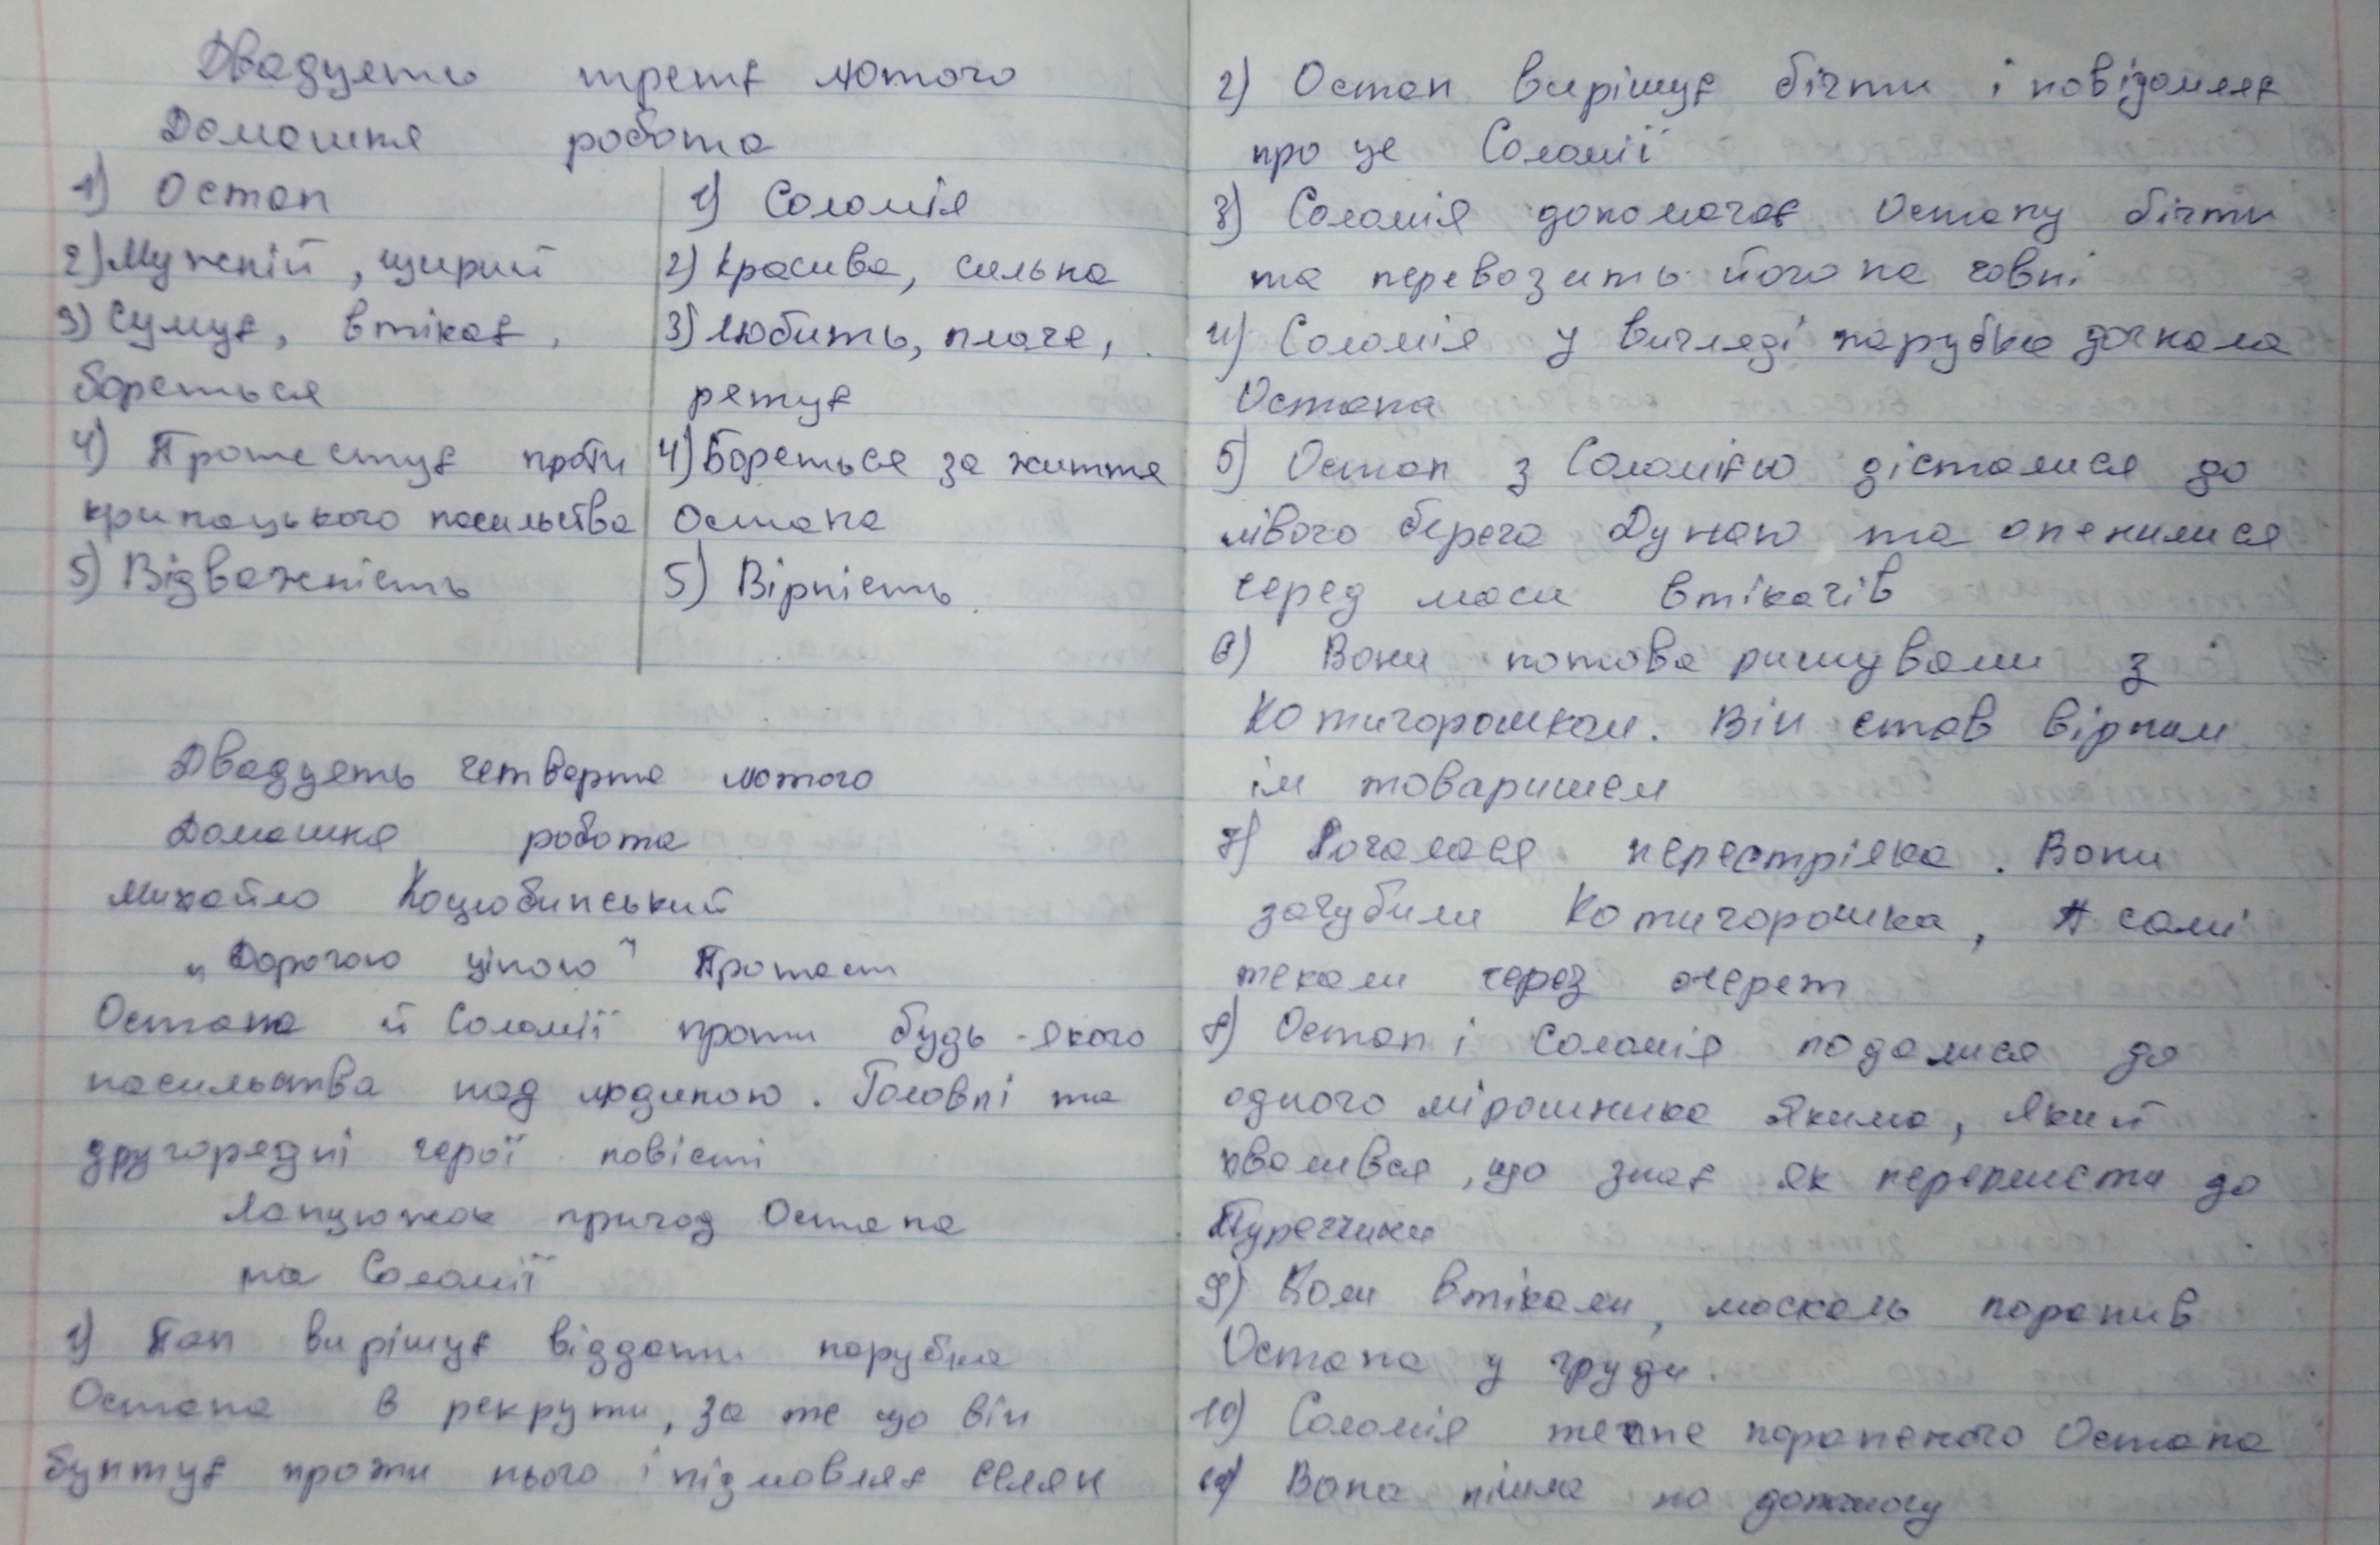 Двадцять третє лютого
Домашня робота
1) Остап
2) Мужній, щирий
3) Сумує, втікає,
бореться
4) Протестує проти
крипацького насильства
5) Відважність
1) Соломія
2) Красива, сильна
3) Любить, плаче,
рятує
4) Бореться за життя
Остапа
5) Вірність
Двадцять четверте лютого
Домашня робота
Михайло Коцюбинський
„Дорогою ціною" Протест
Остапа й Соломії проти будь-якого
насильства над людиною. Головні та
другорядні герої повісті
Ланцюжок пригод Остапа
та Соломії
1) Пан вирішує віддати парубка
Остапа в рекрути, за те що він
бунтує проти нього і підмовляє селян
2) Остап вирішує бігти і повідомляє
про це Соломії
3) Соломія допомагає Остапу бігти
та перевозить його на човні
4) Соломія у вигляді парубка догнала
Остапа
5) Остап з Соломією дісталися до
лівого берега Дунаю та опенилися
серед маси втікачів
6) Вони потоваришували з
Котигорошком. Він став вірним
їм товаришем
7) Почалася перестрілка. Вони
загубили Котигорошка, А самі
текали через очерет
8) Остап і Соломія подалися до
одного мірошника Якима, який
хвалився, що знає як переплисти до
Туреччини
9) Коли втікали, москаль поранив
Остапа у груди.
10) Соломія тягне пораненого Остапа
Вона пішла по допомогу